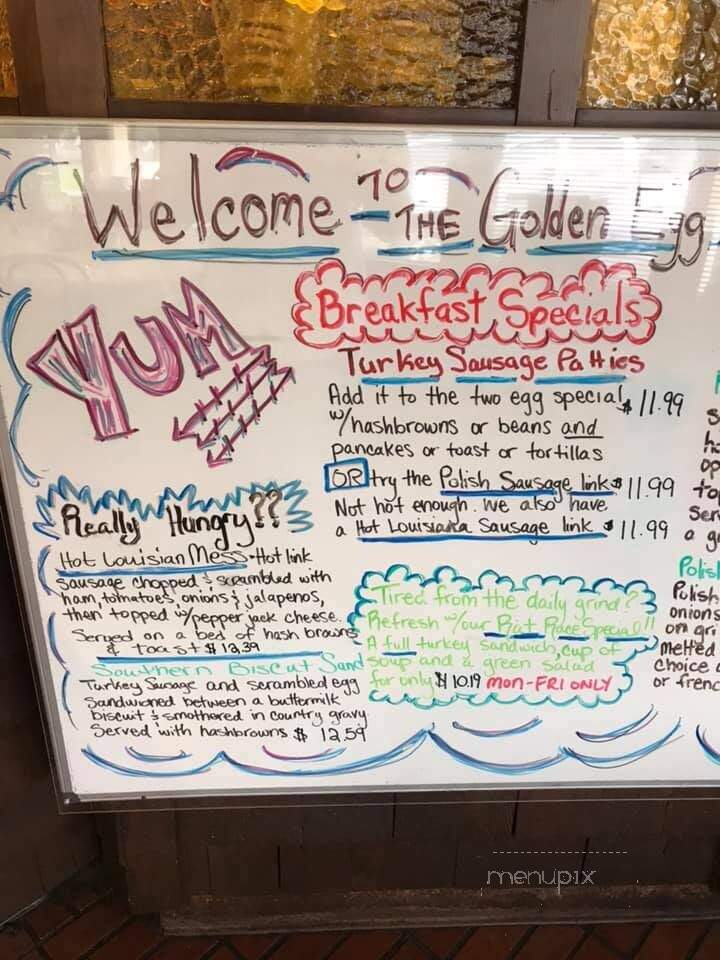 Welcome TO THE Golden Egg
YUM
Breakfast Specials
Turkey Sausage Patties
Add it to the two egg special $11.99
w/hashbrowns or beans and
pancakes or toast or tortillas
OR try the Polish Sausage link $11.99
Not hot enough. We also have
a Hot Louisiana Sausage link $11.99
Really Hungry??
Hot Louisian Mess - Hot link
sausage chopped & scrambled with
ham, tomatoes, onions & jalapenos,
then topped w/pepper jack cheese.
Served on a bed of hash browns
& toast $13.39
Southern Biscut Sand
Turkey Sausage and scrambled egg
Sandwiched between a buttermilk
biscuit & smothered in country gravy.
Served with hashbrowns $12.59
Tired from the daily grind?
Refresh w/our Rat Race Special!!
A full turkey sandwich, cup of
soup and a green salad
for only $10.19 MON-FRI ONLY
to
Ser
a g
Polish
Polish
onions
on gri
melted
choice
or frenc
menupix